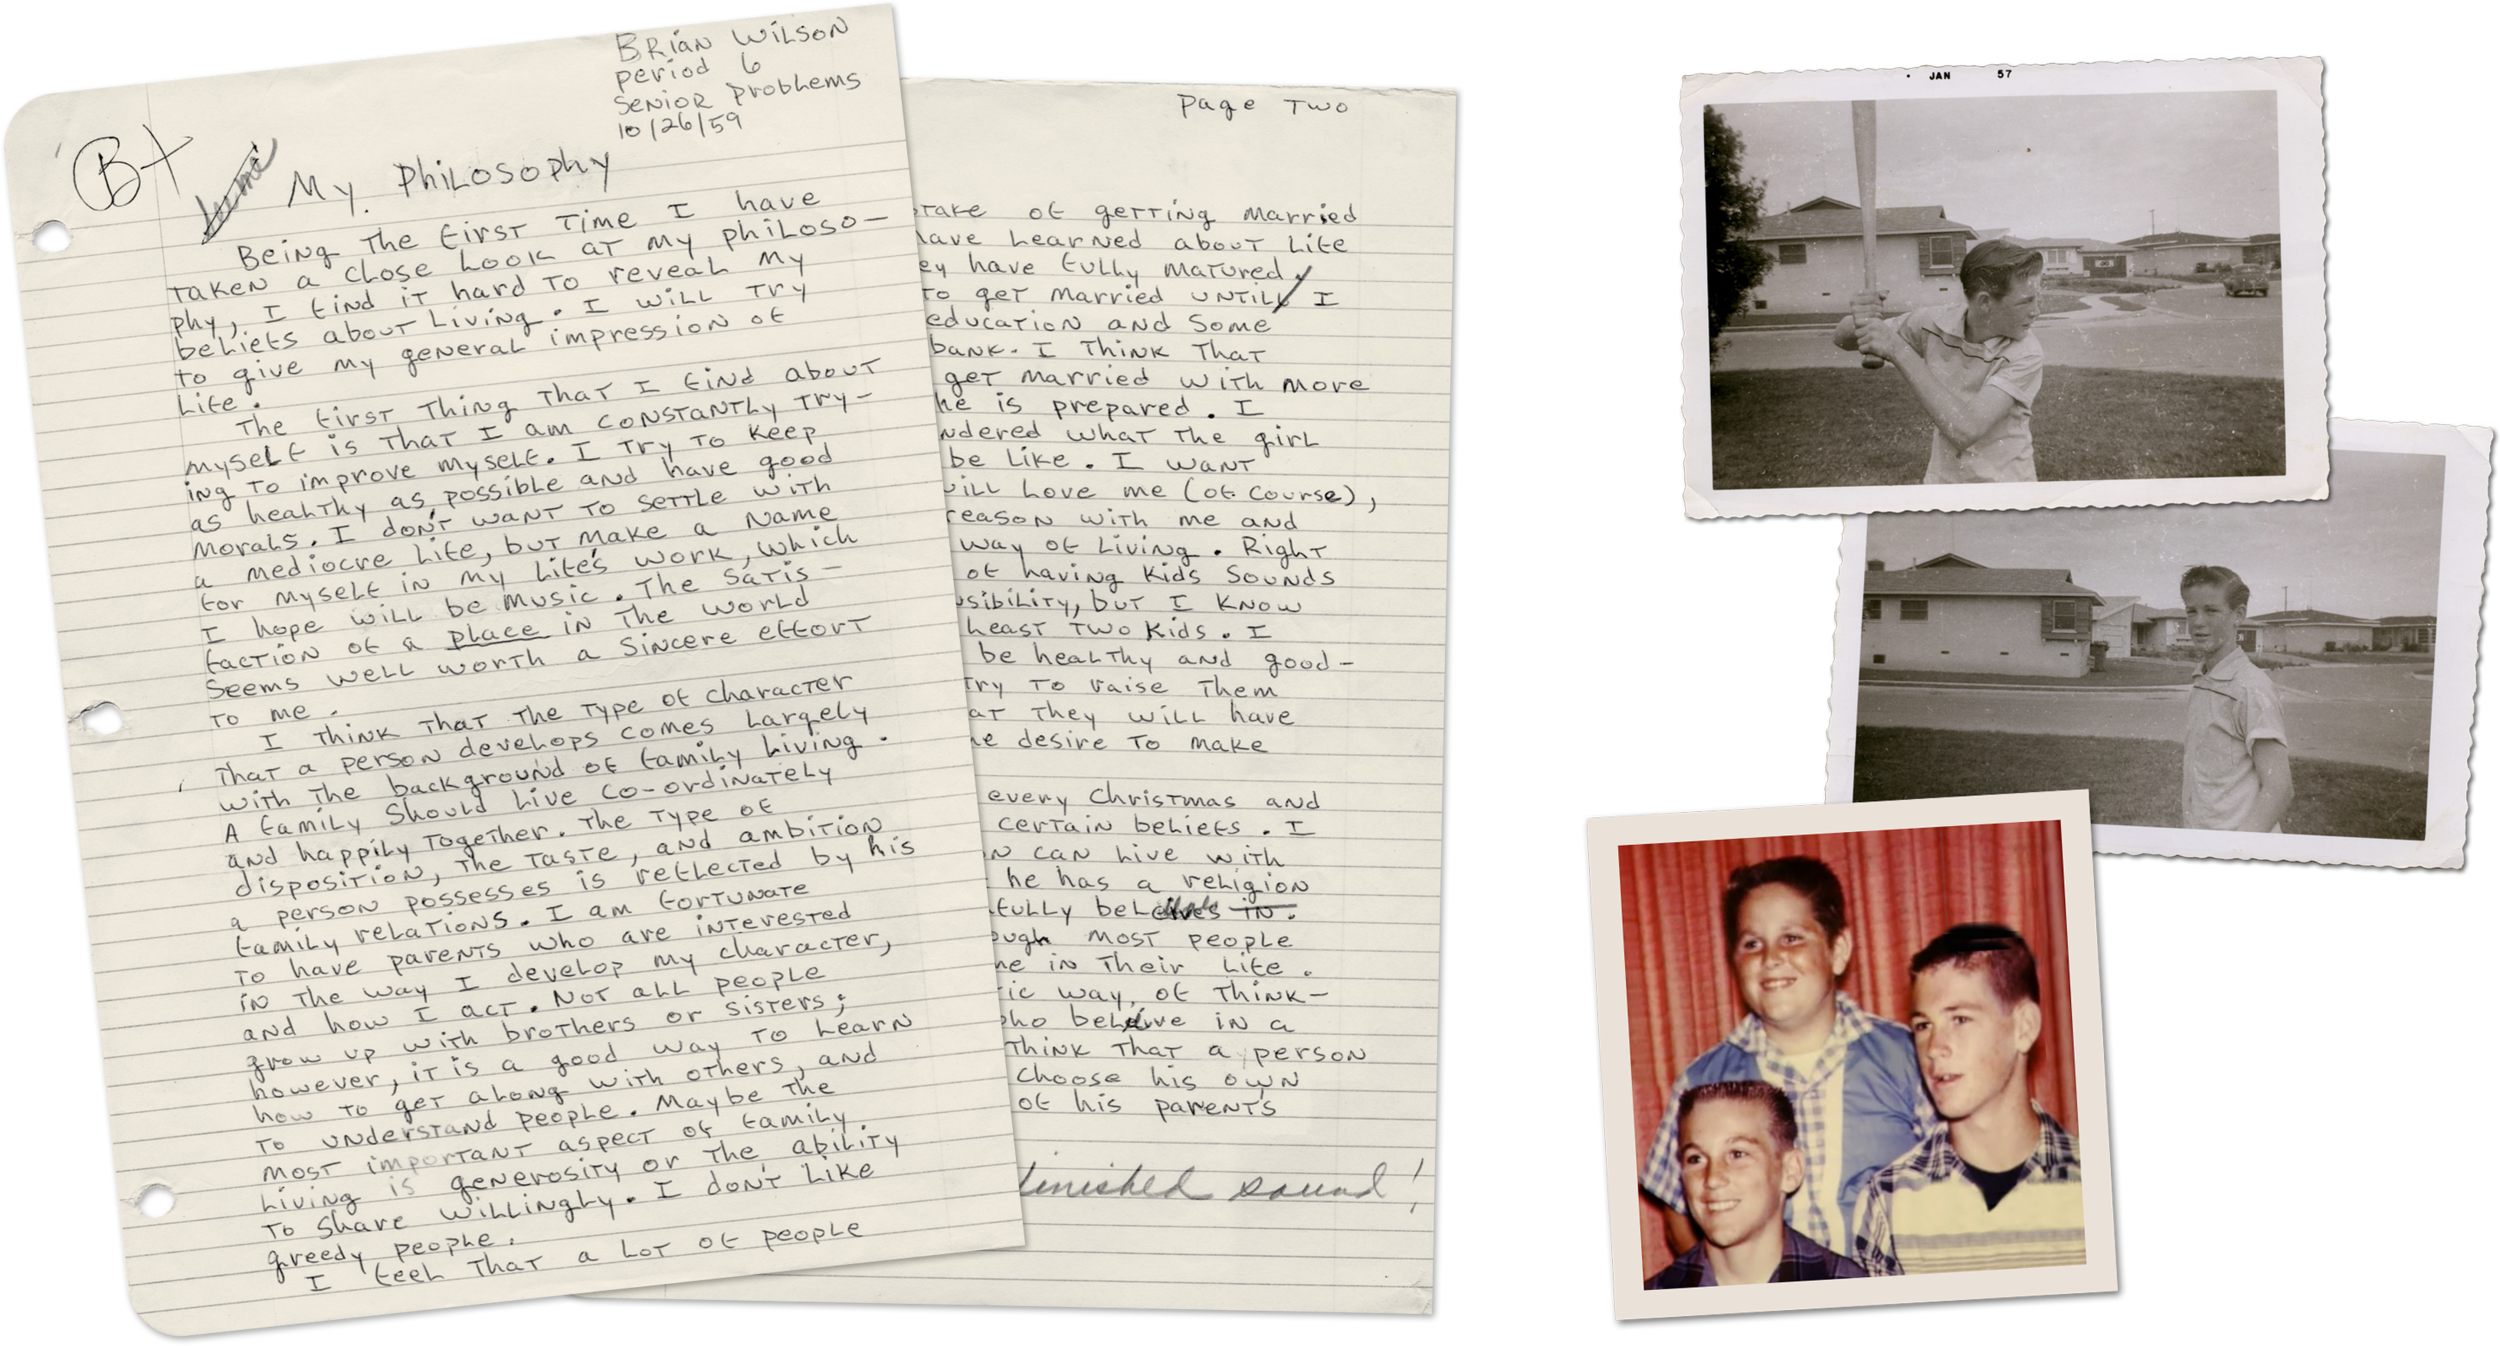 Brian Wilson
period 6
Senior Problems
10/26/59
B+
My Philosophy
Being the first time I have
taken a close look at my philoso-
phy, I find it hard to reveal my
beliefs about living. I will try
to give my general impression of
life.
The first thing that I find about
myself is that I am constantly try-
ing to improve myself. I try to keep
as healthy as possible and have good
morals. I don't want to settle with
a mediocre life, but make a name
for myself in my life's work, which
I hope will be music. The satis-
faction of a place in the world
seems well worth a sincere effort
to me.
I think that the type of character
that a person develops comes largely
with the background of family living.
A family should live co-ordinately
and happily together. The type of
disposition, the taste, and ambition
a person possesses is reflected by his
family relations. I am fortunate
to have parents who are interested
in the way I develop my character,
and how I act. Not all people
grow up with brothers or sisters;
however, it is a good way to learn
how to get along with others, and
to understand people. Maybe the
most important aspect of family
living is generosity or the ability
to share willingly. I don't like
greedy people.
I feel that a lot of people
page Two
take of getting married
have learned about life
ey have fully matured.
to get married until I
education and some
bank. I think that
get married with more
he is prepared. I
ndered what the girl
be like. I want
will love me (of course),
reason with me and
way of living. Right
of having kids sounds
sibility, but I know
least two kids. I
be healthy and good-
try to raise them
at they will have
he desire to make
every Christmas and
certain beliefs. I
n can live with
he has a religion
fully believes in.
ough most people
me in their life.
ic way, of think-
who beleive in a
think that a person
choose his own
of his parent's
finished sound!
JAN 57